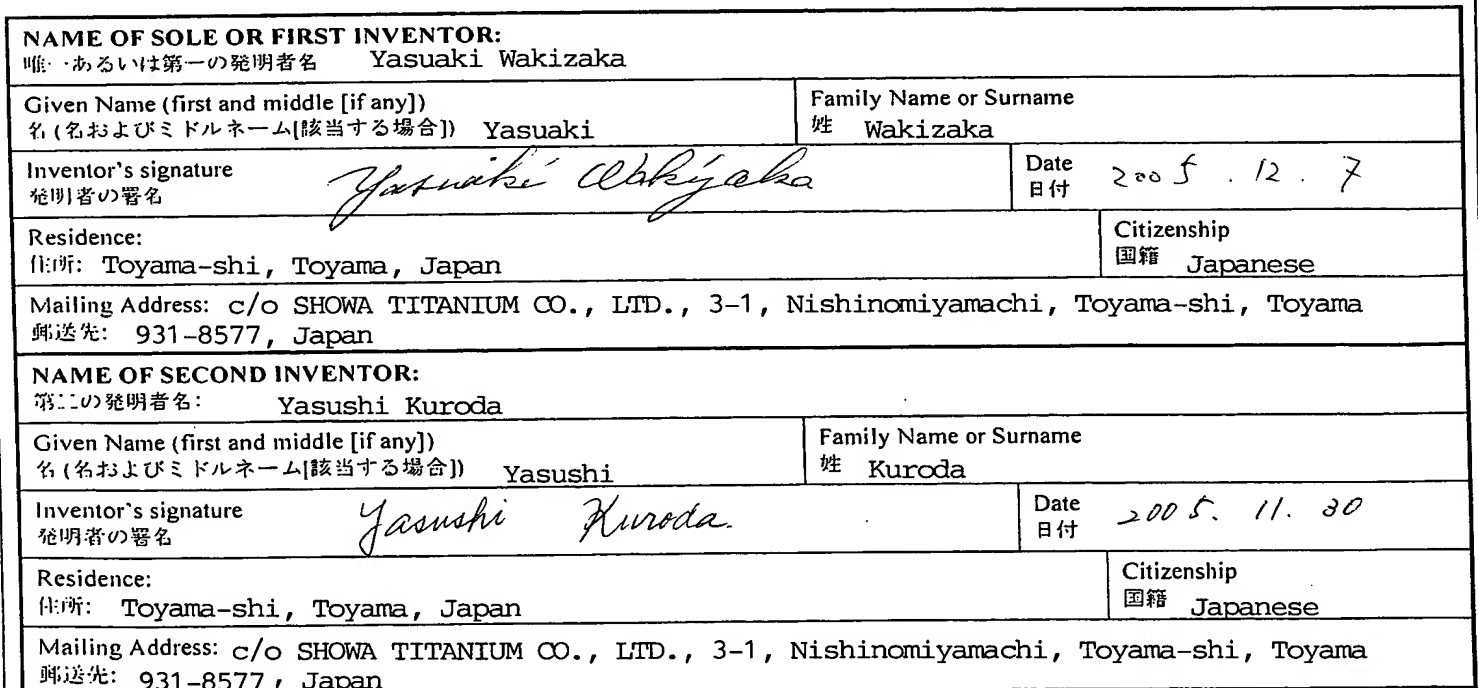 NAME OF SOLE OR FIRST INVENTOR:
唯一あるいは第一の発明者名 Yasuaki Wakizaka
Given Name (first and middle [if any])
名 (名およびミドルネーム[該当する場合]) Yasuaki
Family Name or Surname
姓 Wakizaka
Inventor's signature
発明者の署名 Yasuaki Wakizaka
Date
日付 2005 . 12 . 7
Residence:
住所: Toyama-shi, Toyama, Japan
Citizenship
国籍 Japanese
Mailing Address: c/o SHOWA TITANIUM CO., LTD., 3-1, Nishinomiyamachi, Toyama-shi, Toyama
郵送先: 931-8577, Japan
NAME OF SECOND INVENTOR:
第二の発明者名: Yasushi Kuroda
Given Name (first and middle [if any])
名 (名およびミドルネーム[該当する場合]) Yasushi
Family Name or Surname
姓 Kuroda
Inventor's signature
発明者の署名 Yasushi Kuroda.
Date
日付 2005. 11. 30
Residence:
住所: Toyama-shi, Toyama, Japan
Citizenship
国籍 Japanese
Mailing Address: c/o SHOWA TITANIUM CO., LTD., 3-1, Nishinomiyamachi, Toyama-shi, Toyama
郵送先: 931-8577, Japan